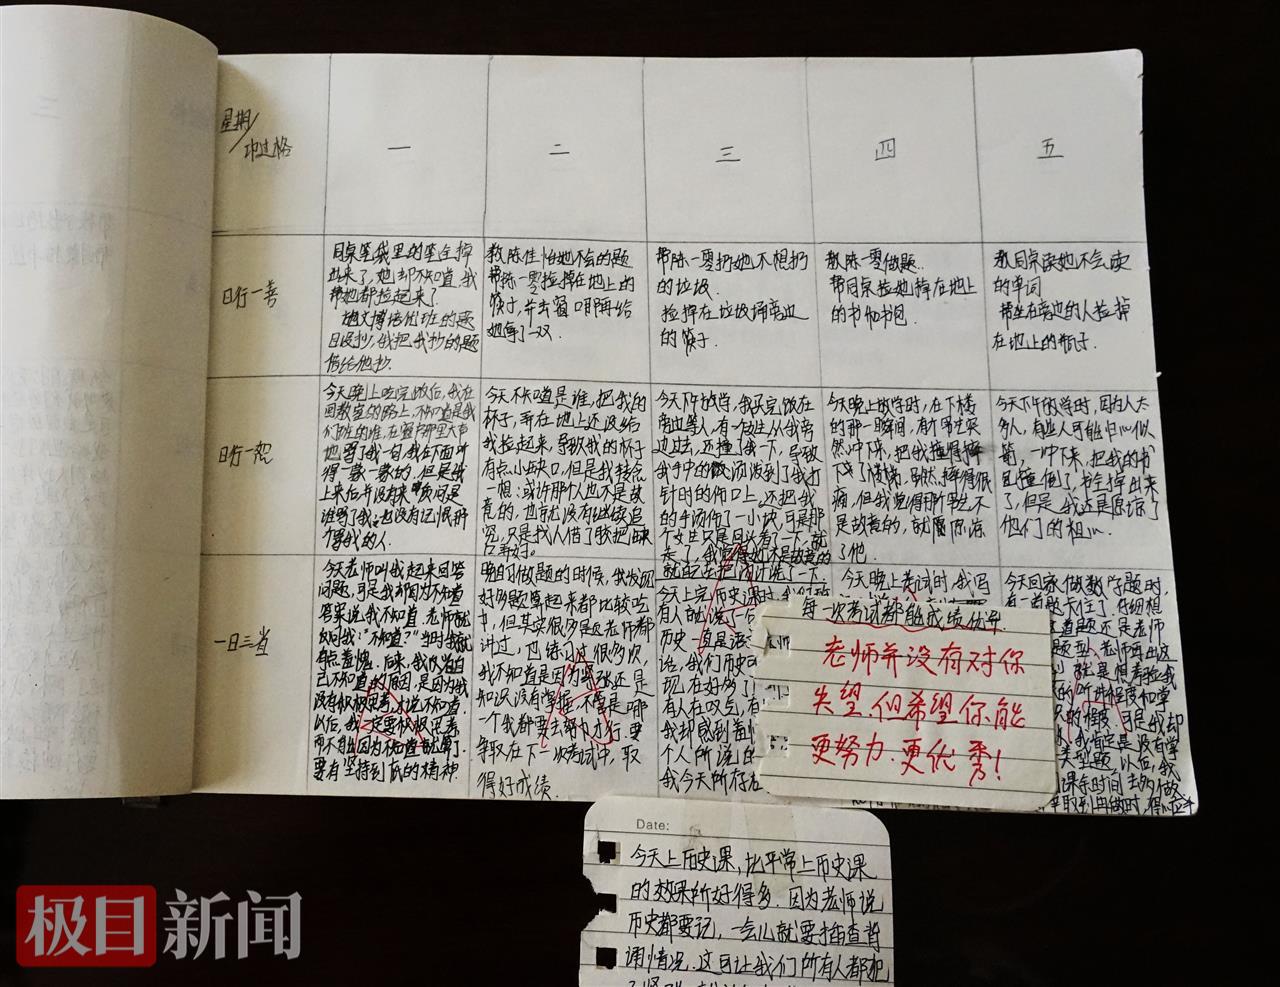 星期/功过格
一
二
三
四
五
日行一善
同桌笔袋里的笔全掉
出来了,她却不知道,我
帮她都捡起来了.
地文博培优班的题
目没抄,我把我抄的题
借给他抄.
教陈佳怡她不会的题
帮陈一零捡掉在地上的
筷子,并去窗口那再给
她拿了一双
帮陈一零扔她不想扔
的垃圾.
捡掉在垃圾桶旁边
的筷子.
教陈一零做题.
帮同桌捡她掉在地上
的书和书包.
教同桌读她不会读
的单词
帮坐在旁边的人捡掉
在地上的瓶子.
日行一恕
今天晚上吃完饭后,我在
回教室的路上,不知道是我
们班的谁,在窗户那里大声
地骂了我一句,我在下面听
得一
上来后并没有来质问是
谁骂了我,也没有记恨那
个骂我的人.
今天不知道是谁,把我的
杯子,弄在地上还没给
我捡起来,导致我的杯子
有点小缺口,但是我转念
一想:或许那个人也不是故
意的,也就没有继续追
究,只是找人借了胶把缺
口弄好。
今天下午放学,我买完饭在
旁边等人,有一个女生从我旁
边过去,还撞了我一下,导致
我手中的汤泼到了我打
针时的伤口上,还把我
的手烫伤了一小块,可是那
个女生只是回头看了一下,就
走了,我觉得她不是故意的
就自己去把汤汁洗了一下.
今天晚上放学时,在下楼
的那一瞬间,有个男生突
然冲下来,把我撞得摔
下了楼梯,虽然摔得很
痛,但我觉得那个男生不
是故意的,就原谅
了他.
今天下午放学时,因为人太
多,有些人可能归心似
箭,一冲下来,把我的书
包撞倒了,书全掉出来
了,但是,我还是原谅了
他们的粗心
一日三省
今天老师叫我起来回答
问题,可是我却因为不知道
答案说我不知道,老师就
反问我:"不知道?"当时我就
有点羞愧,后来,我反省自
己不知道的原因,是因为我
没有积极思考,才说不知道.
以后,我一定要积极思考
而不当因为不知道就算了.
要有坚持到底的精神.
晚自习做题的时候,我发现
好多题算起来都比较吃
力,但其实很多题老师都
讲过,也练习过很多次,
我不知道是因为紧张还是
知识没有掌握,不管是哪
一个我都要去努力才行,要
争取在下一次考试中,取
得好成绩.
今天上完历史课时,我们班
有人就说了
历史一直是
说,我们历史
现在好多了
有人在叹气,
我却感到羞
个人所说的
我今天所存在
今天晚上考试时,我写
每一次考试都能成绩优异.
老师并没有对你
失望,但希望你能
更努力.更优秀!
今天回家做数学题时,
有一道题卡住了,仔细想
道题还是老师
题型,老师再出这
就是想考验我
听讲程度和掌
的程度,可是我却
我肯定是没有掌
类型题,以后,我
课余时间,去多做
Date:
今天上历史课,比平常上历史课
的效果听好得多.因为老师说
历史都要记,一会儿就要抽查背
诵情况.这可让我们所有人都把
极目新闻